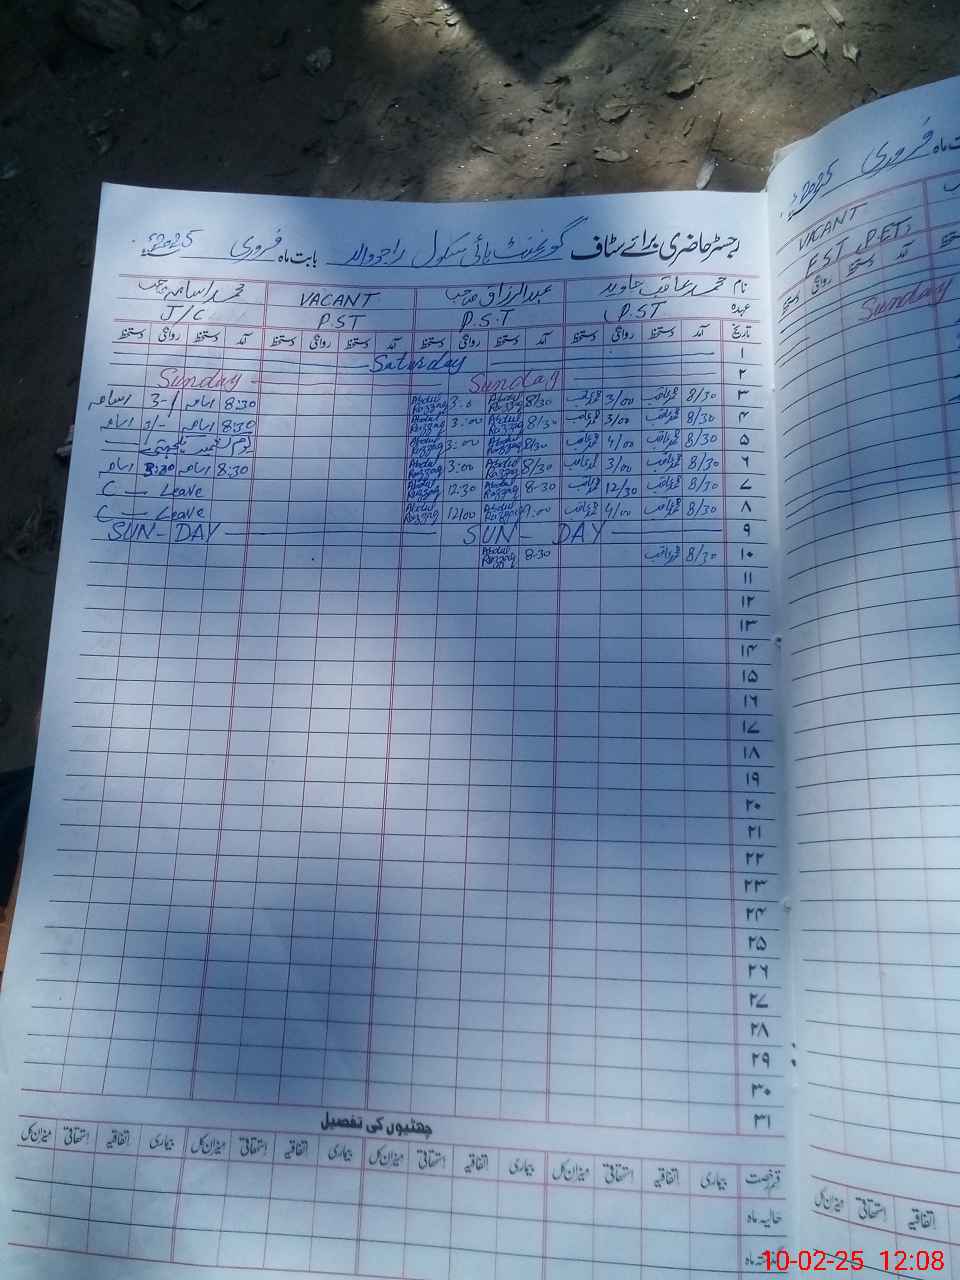 رجسٹر حاضری برائے سٹاف گورنمنٹ ہائی سکول راجووالہ بابت ماہ فروری 2025ء
نام محمد عاقب جاوید عبدالرزاق صاحب VACANT محمد اسامہ صاحب
عہدہ P.ST P.S.T P.ST J/C
تاریخ آمد دستخط روانگی دستخط آمد دستخط روانگی دستخط آمد دستخط روانگی دستخط آمد دستخط روانگی دستخط
۱ Saturday
۲ Sunday Sunday
۳ 8/30 3/00 8/30 Abdul Razzaq 3:0 Abdul Razzaq 8:30 اسامہ 3-/ اسامہ
۴ 8/30 3/00 8/30 Abdul Razzaq 3:00 Abdul Razzaq 8:30 اسامہ 3/- اسامہ
۵ 8/30 4/00 8/30 Abdul Razzaq 3:00 Abdul Razzaq یوم کشمیر یکجہتی
۶ 8/30 3/00 8/30 Abdul Razzaq 3:00 Abdul Razzaq 8:30 اسامہ 3:00 اسامہ
۷ 8/30 12/30 8-30 Abdul Razzaq 12:30 Abdul Razzaq C — Leave
۸ 8/30 4/00 9:00 Abdul Razzaq 12/00 Abdul Razzaq C — Leave
۹ SUN - DAY SUN - DAY
۱۰ 8/30 8:30 Abdul Razzaq
۱۱
۱۲
۱۳
۱۴
۱۵
۱۶
۱۷
۱۸
۱۹
۲۰
۲۱
۲۲
۲۳
۲۴
۲۵
۲۶
۲۷
۲۸
۲۹
۳۰
۳۱
چھٹیوں کی تفصیل
قسم رخصت بیماری اتفاقیہ استحقاقی میزان کل بیماری اتفاقیہ استحقاقی میزان کل بیماری اتفاقیہ استحقاقی میزان کل بیماری اتفاقیہ استحقاقی میزان کل
حالیہ ماہ
ماہ
ماہ فروری 2025ء
VACANT
EST (PET)
دستخط روانگی دستخط
Sunday
اتفاقیہ استحقاقی میزان کل
10-02-25 12:08